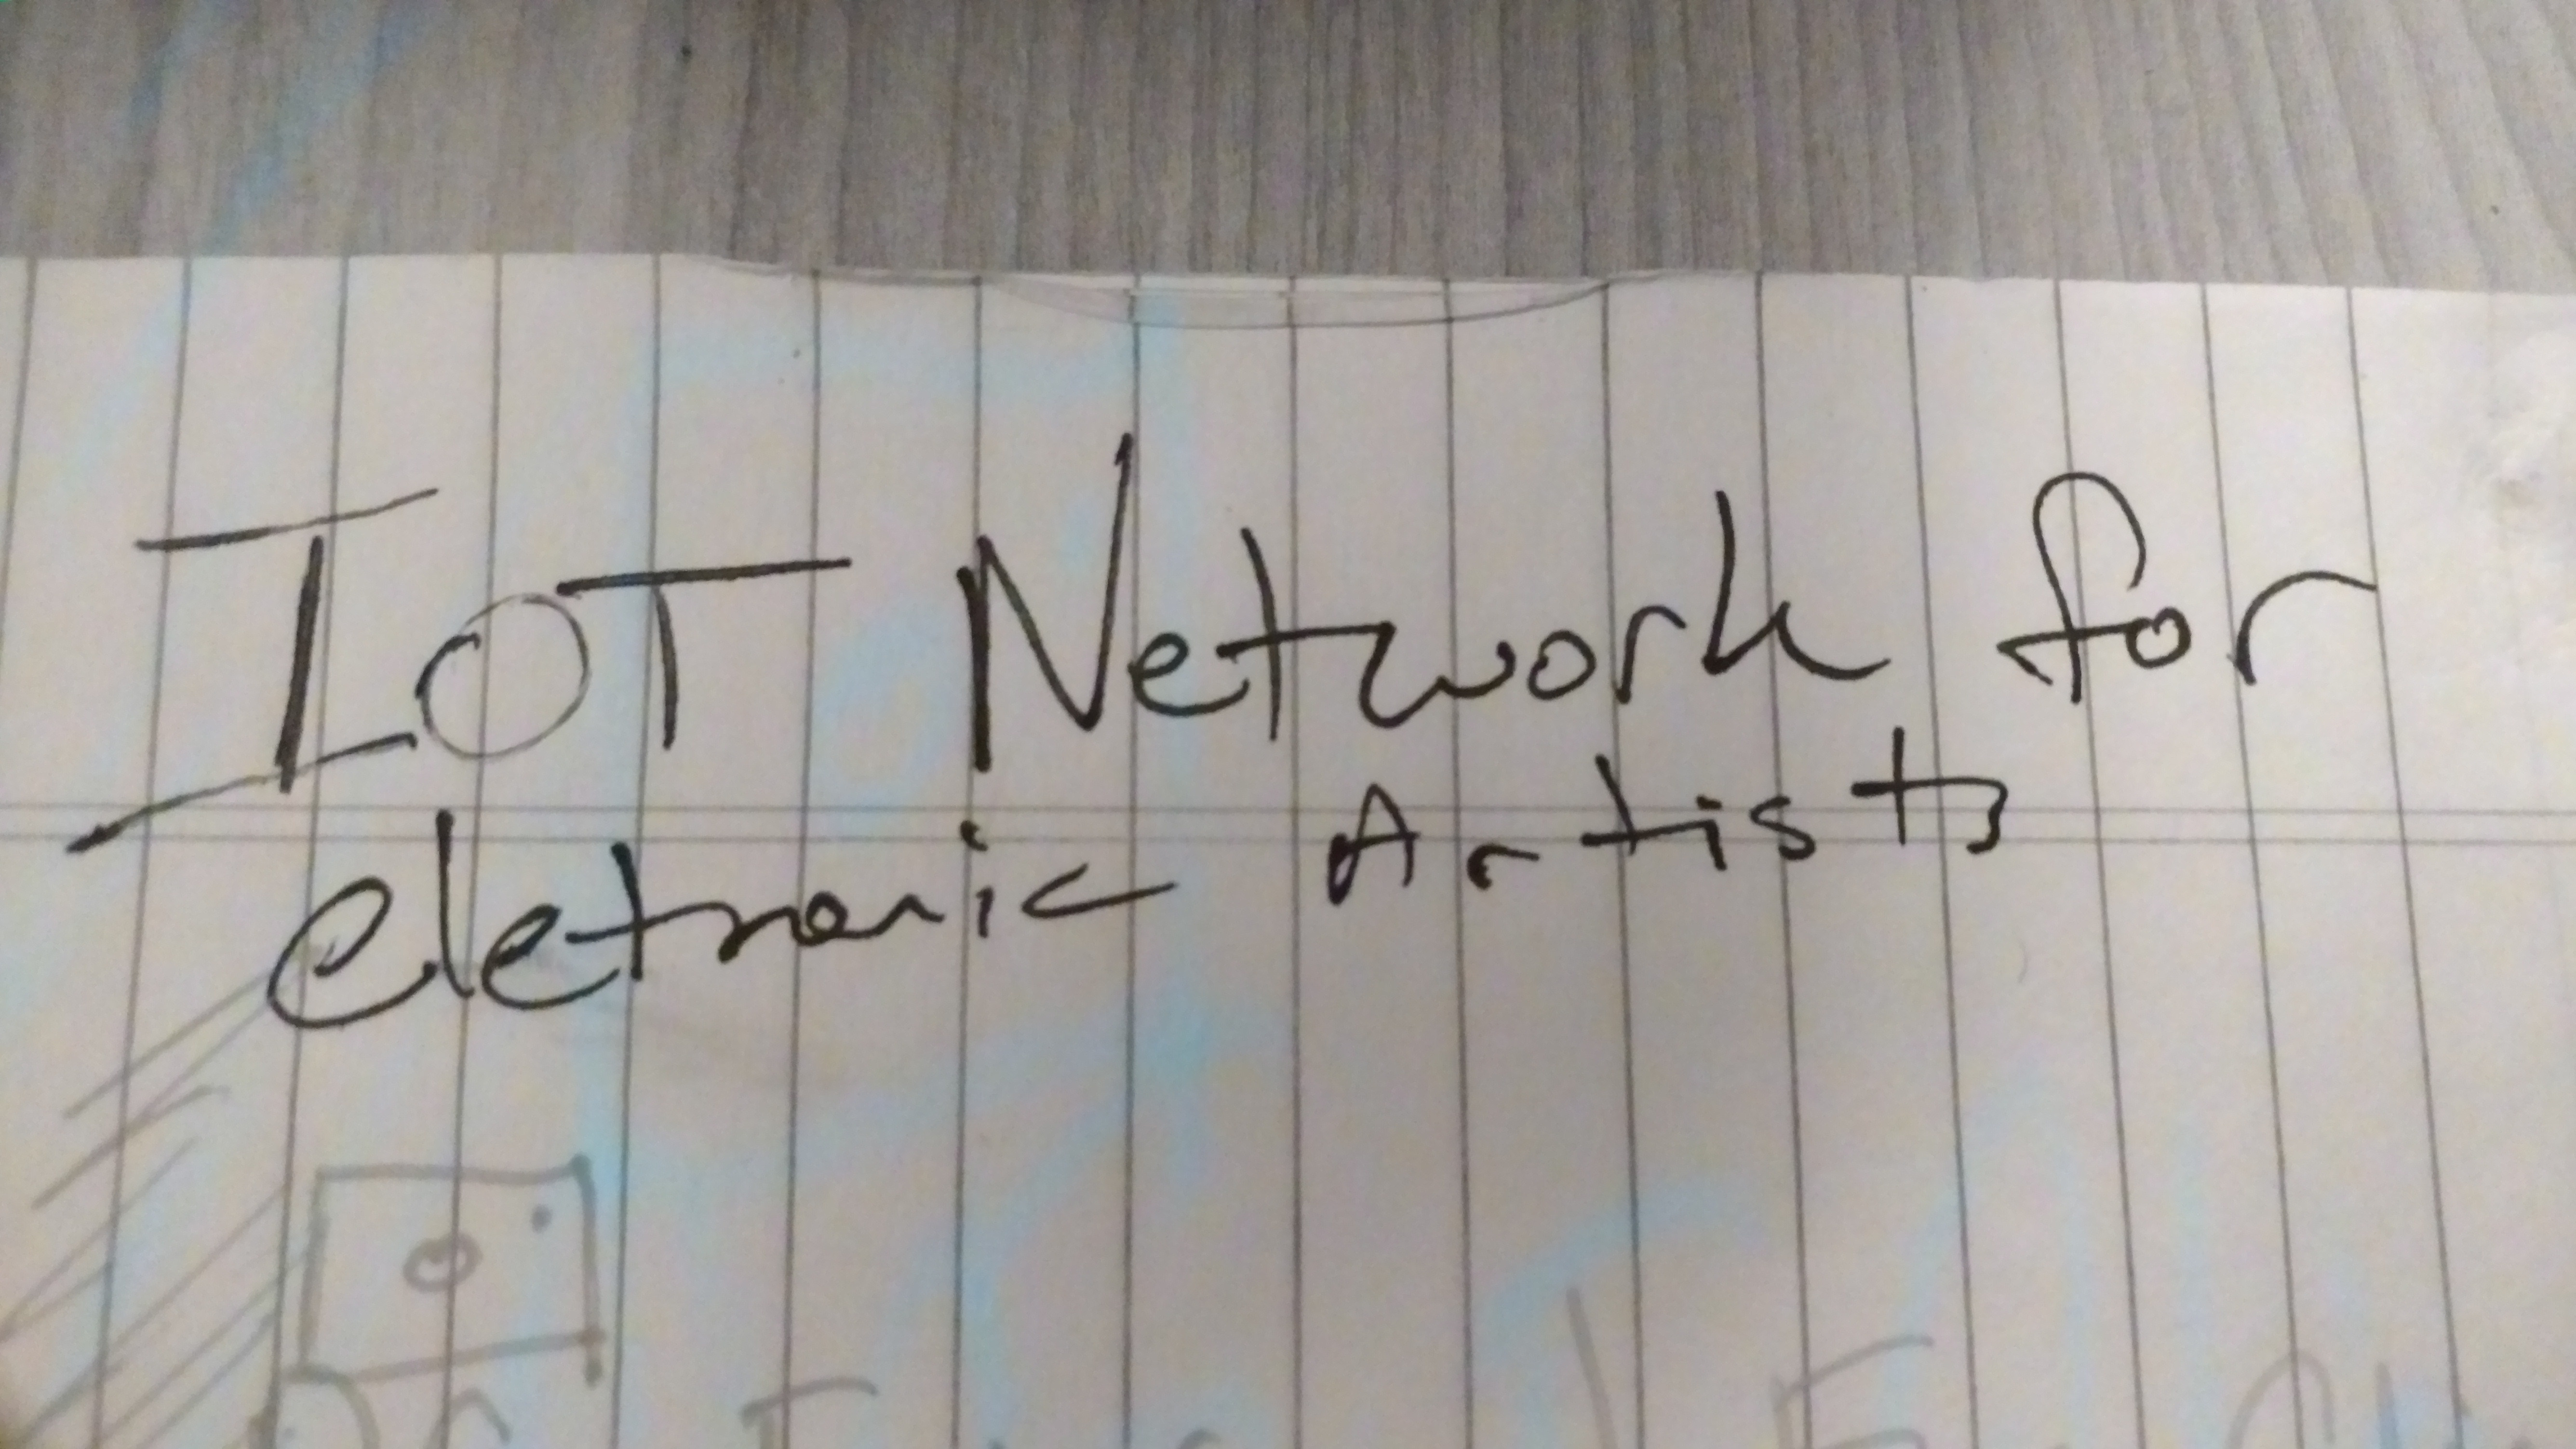 IOT Network for
eletronic Artists